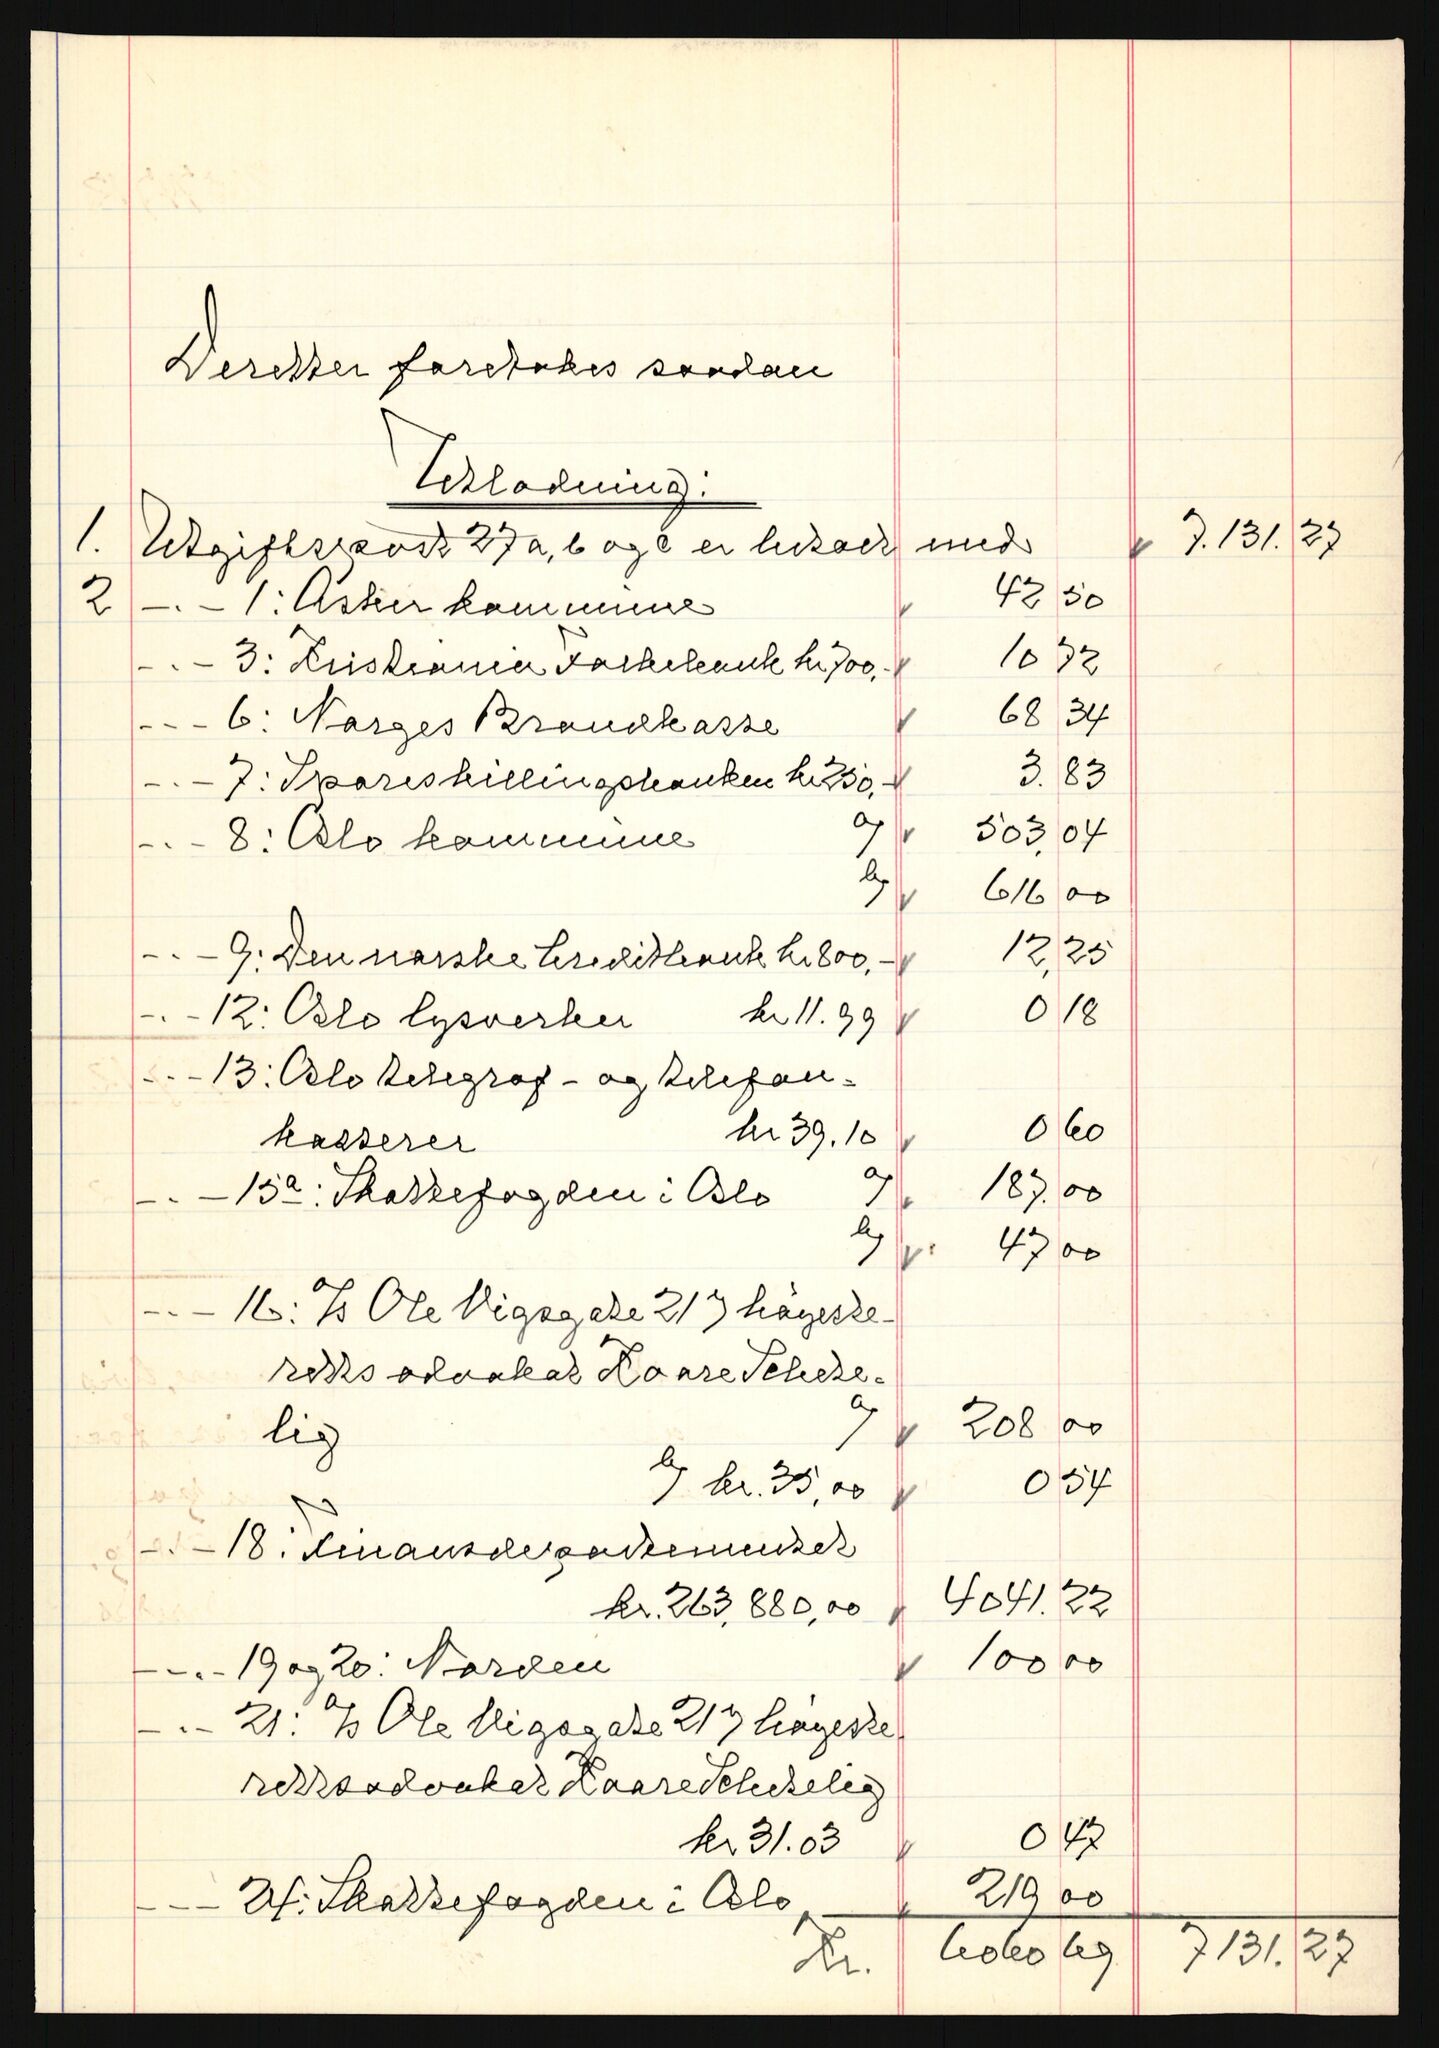 Deretter foretokes saadan
Utlodning:
1. Utgiftspost 27 a, b og c er betalt med 7.131.27
2 -.- 1: Asker kommune 42 50
-.- 3: Kristiania Folkebank kr 700,- 10 72
-.- 6: Norges Brandkasse 68 34
-.- 7: Spareskillingsbanken kr 250,- 3.83
-.- 8: Oslo kommune a) 503,04
b) 616 00
-.- 9: Den norske Creditbank kr 800,- 12,25
-.- 12: Oslo lysverker kr 11.99 0 18
-.- 13: Oslo telegraf- og telefon-
kasserer kr 39.10 0 60
-.- 15a: Skattefogden i Oslo a) 187.00
b) 47 00
-.- 16: A/S Ole Vigsgate 21 v/ høyeste-
retts advokat Kaare Schete-
lig a) 208 00
b) kr. 35,00 0 54
-.- 18: Finansdepartementet
kr. 263,880,00 4041.22
-.- 19 og 20: Norden 100 00
-.- 21: A/S Ole Vigsgate 21 v/ høyeste
rettsadvokat Kaare Schetelig
kr 31.03 0 47
-.- 24: Skattefogden i Oslo 219 00
Kr. 6060 69 7131.27